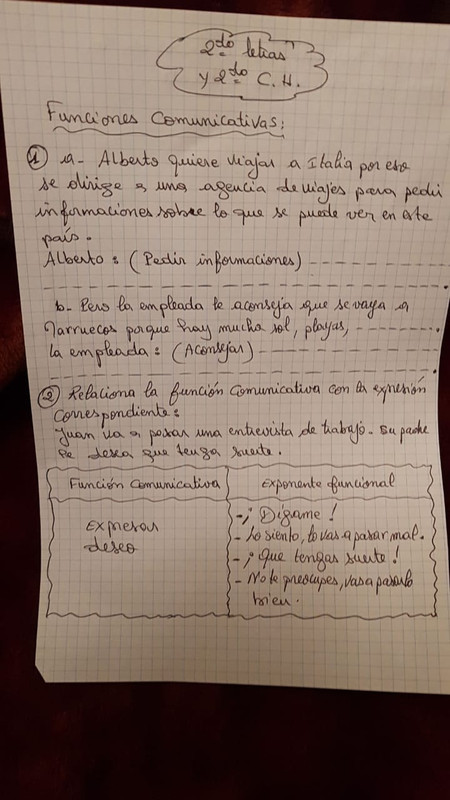 2do letras
y 2do C.H.
Funciones Comunicativas:
1 a- Alberto quiere viajar a Italia por eso
se dirige a una agencia de viajes para pedir
informaciones sobre lo que se puede ver en este
país.
Alberto: (Pedir informaciones) ----------
----------
b- Pero la empleada le aconseja que se vaya a
Marruecos porque hay mucha sol, playas, ----------
la empleada: (Aconsejar) ----------
----------
2 Relaciona la función comunicativa con la expresión
correspondiente:
Juan va a pasar una entrevista de trabajo. Su padre
se desea que tenga suerte.
Función comunicativa
Exponente funcional
Expresar
deseo
- ¡Dígame!
- Lo siento, lo vas a pasar mal.
- ¡Que tengas suerte!
- No te preocupes, vas a pasarlo
bien.